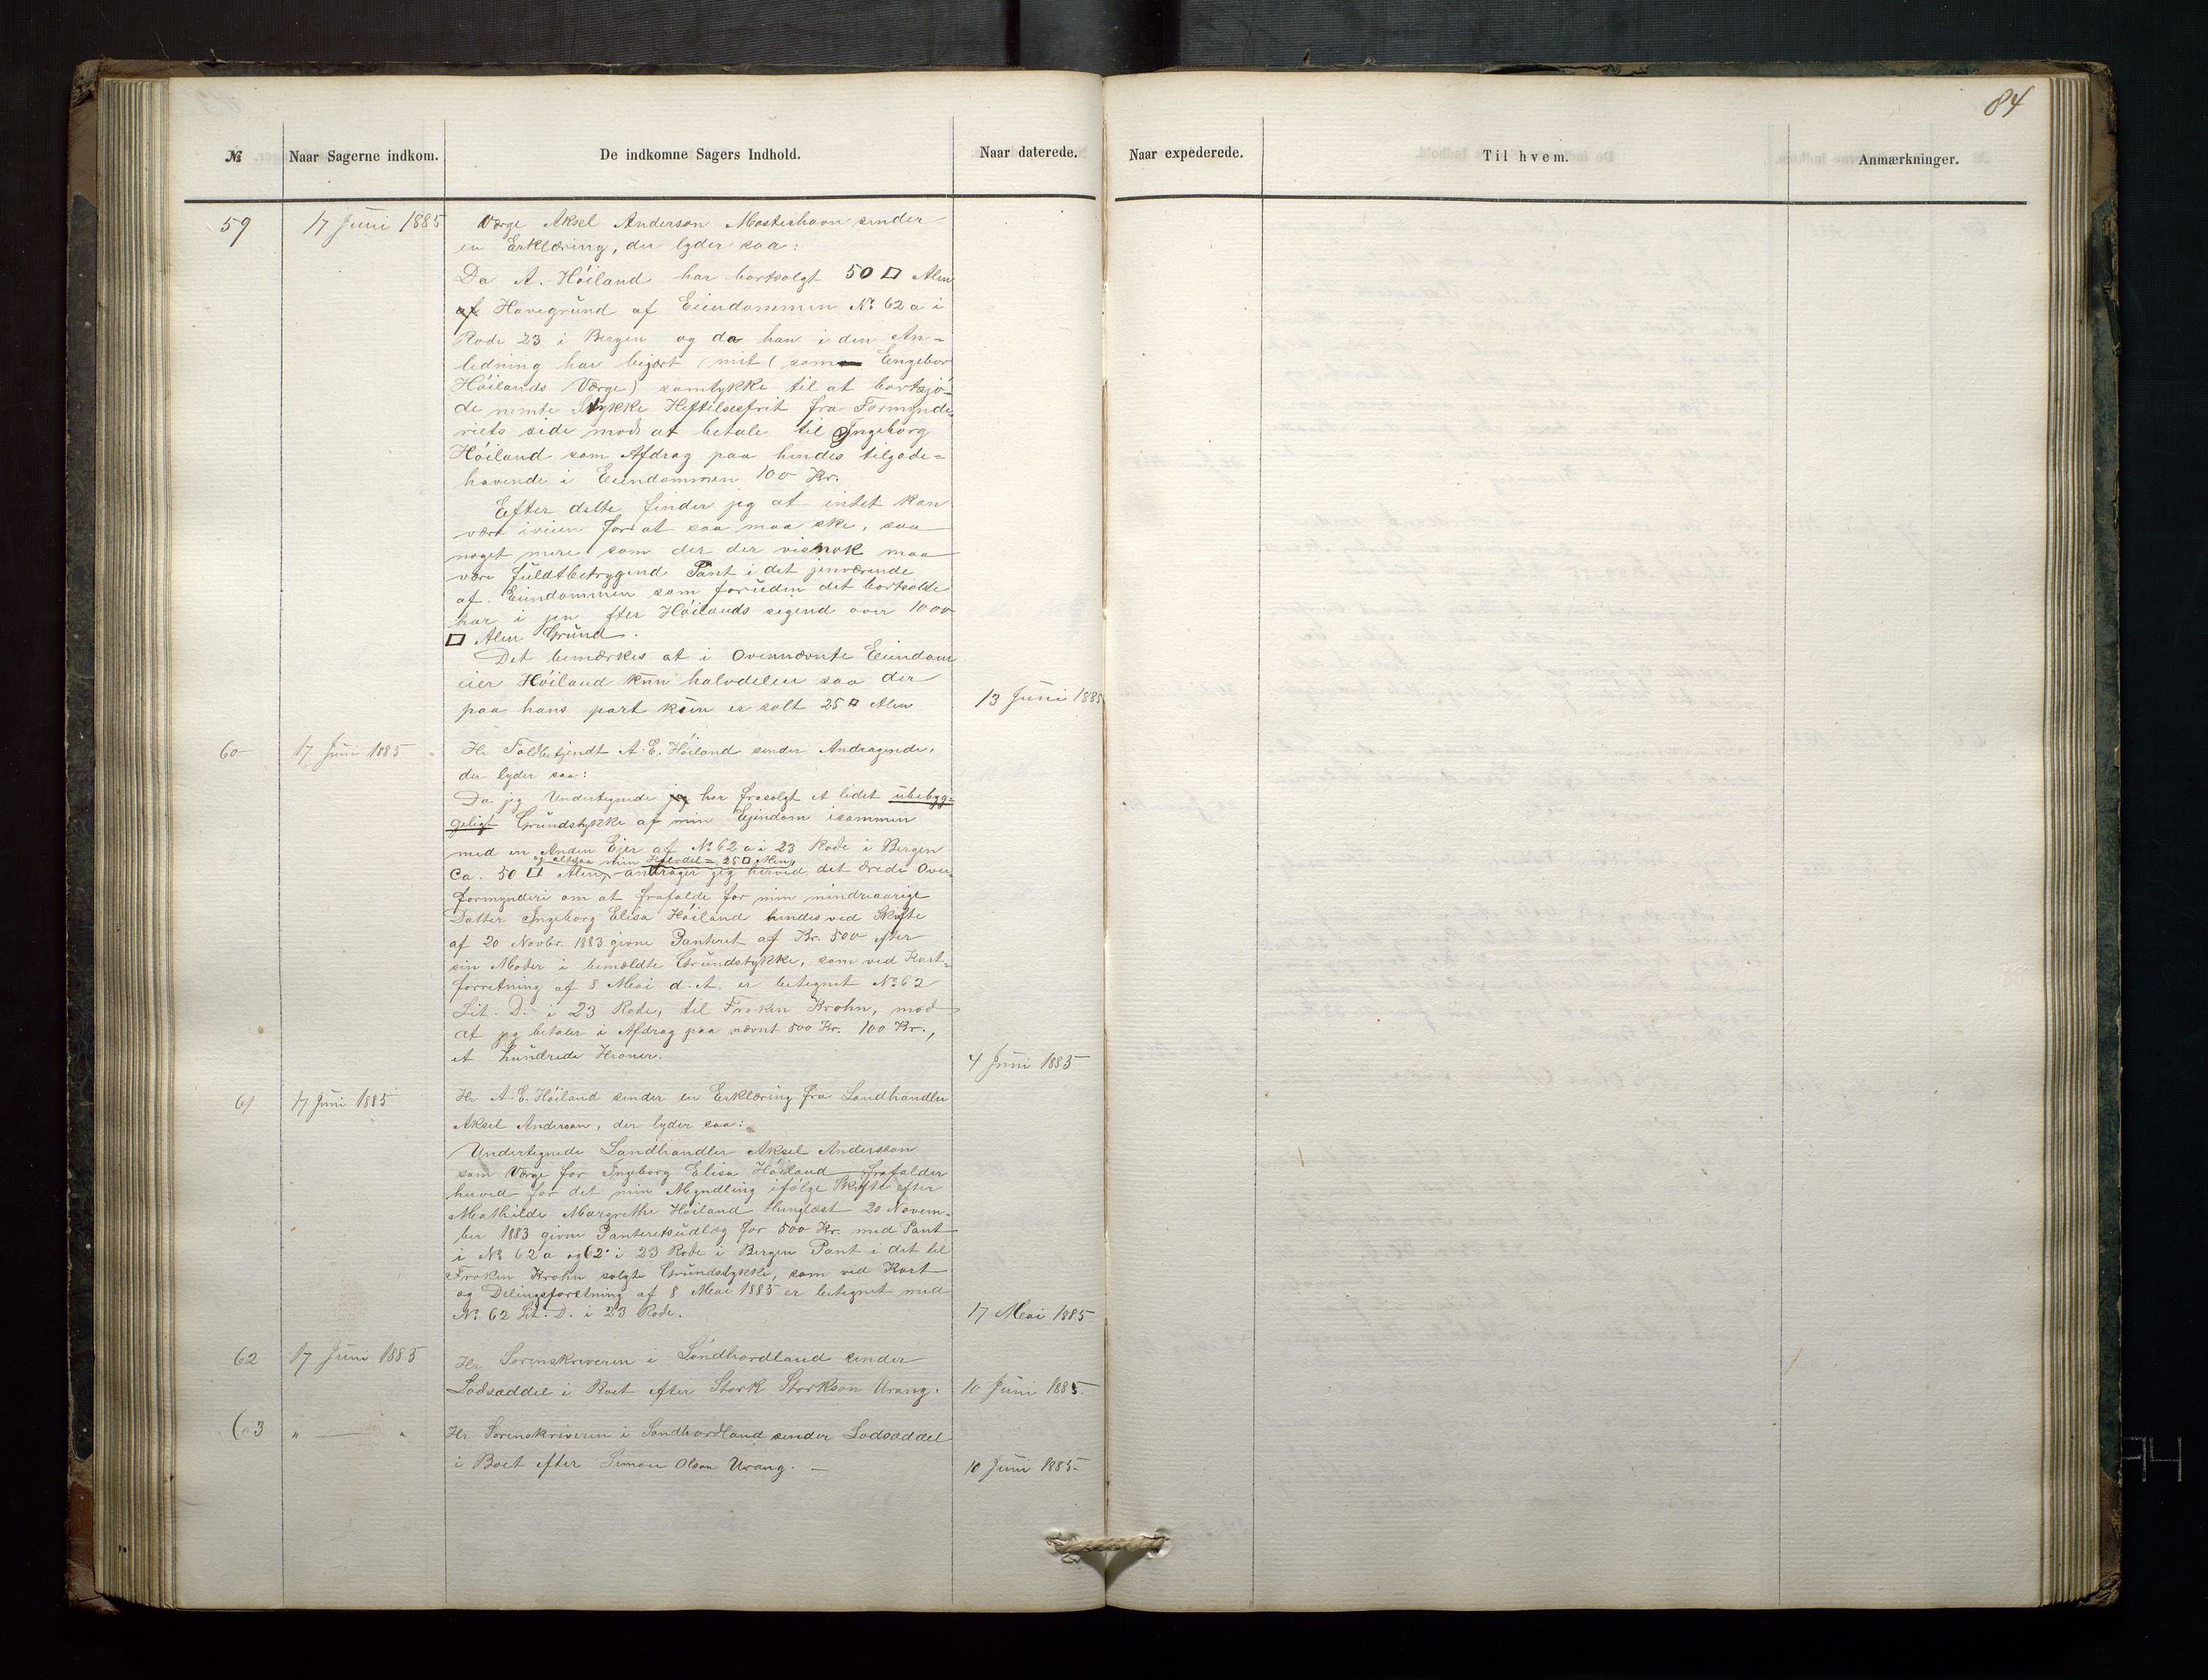 84
№ Naar Sagerne indkom. De indkomne Sagers Indhold. Naar daterede. Naar expederede. Til hvem. Anmærkninger.
59 17 Juni 1885 Værge Aksel Anderson Mosterhavn sender
en Erklæring, der lyder saa:
Da A. Höiland har bortsolgt 50 □ Alen
af Havegrund af Eiendommen № 62 a i
Rode 23 i Bergen og da han i den An=
ledning har begjært mit (som Engebor
Höilands Værge) samtykke til at bortsjö-
de nemte Stykke Heftelsesfrit fra Formynde-
riets side mod at betale til Ingeborg
Höiland som Afdrag paa hendes tilgode=
havende i Eiendommen 100 Kr.
Efter dette finder jeg at intet kan
være iveien for at saa maa ske, saa
noget mere som der der visnok maa
være fuldtbetryggend Pant i det jenværende
af Eiendommen som foruden det bortsolte
har i jen efter Höilands sigend over 1000
□ Alen Grund.
Det bemærkes at i Ovennævnte Eiendom
eier Höiland kun halvdelen saa der
paa hans part kun er solt 25 □ Alen 13 Juni 1885
60 17 Juni 1885 Hr Toldbetjendt A. E. Höiland sender Andragende,
der lyder saa:
Da jeg Undertegnede jeg har frasolgt et lidet ubebyg=
geligt Grundstykke af min Ejendom isammen
med en Anden Ejer af № 62 a i 23 Rode i Bergen
og altsaa min Halvdel = 25 □ Alen,
Ca. 50 □ Alen, andrager jeg herved det ærede Over-
formynderi om at frafalde for min mindreaarige
Datter Ingeborg Elisa Höiland hendes ved Skifte
af 20 Novbr. 1883 givne Panteret af Kr. 500 efter
sin Moder i bemældte Grundstykke, som ved Kart-
forretning af 8 Mai d. A. er betegnet № 62
Lit. D. i 23 Rode, til Frøken Krohn, mod
at jeg betaler i Afdrag paa nævnt 500 Kr. 100 Kr.,
et hundrede Kroner. 4 Juni 1885
61 17 Juni 1885 Hr A. E. Höiland sender en Erklæring fra Landhandler
Aksel Anderson, der lyder saa:
Undertegnede Landhandler Aksel Andersson
som Værge for Ingeborg Elisa Höiland frafalder
herved for det min Myndling ifölge Skifte efter
Mathilde Margrethe Höiland thinglæst 20 Novem-
ber 1883 givne Panteretsudlæg for 500 Kr. med Pant
i № 62 a og 62 i 23 Rode i Bergen Pant i det til
Frøken Krohn solgte Grundstykke, som ved Kart
og Delingsforretning af 8 Mai 1885 er betegnet med
№ 62 Lit. D. i 23 Rode. 17 Mai 1885
62 17 Juni 1885 Hr Sorenskriveren i Söndhordland sender
Lodsæddel i Boet efter Stork Storkson Urang. 10 Juni 1885.
63 " — " Hr Sorenskriveren i Söndhordland sender Lodsæddel
i Boet efter Simon Olson Urang. — 10 Juni 1885